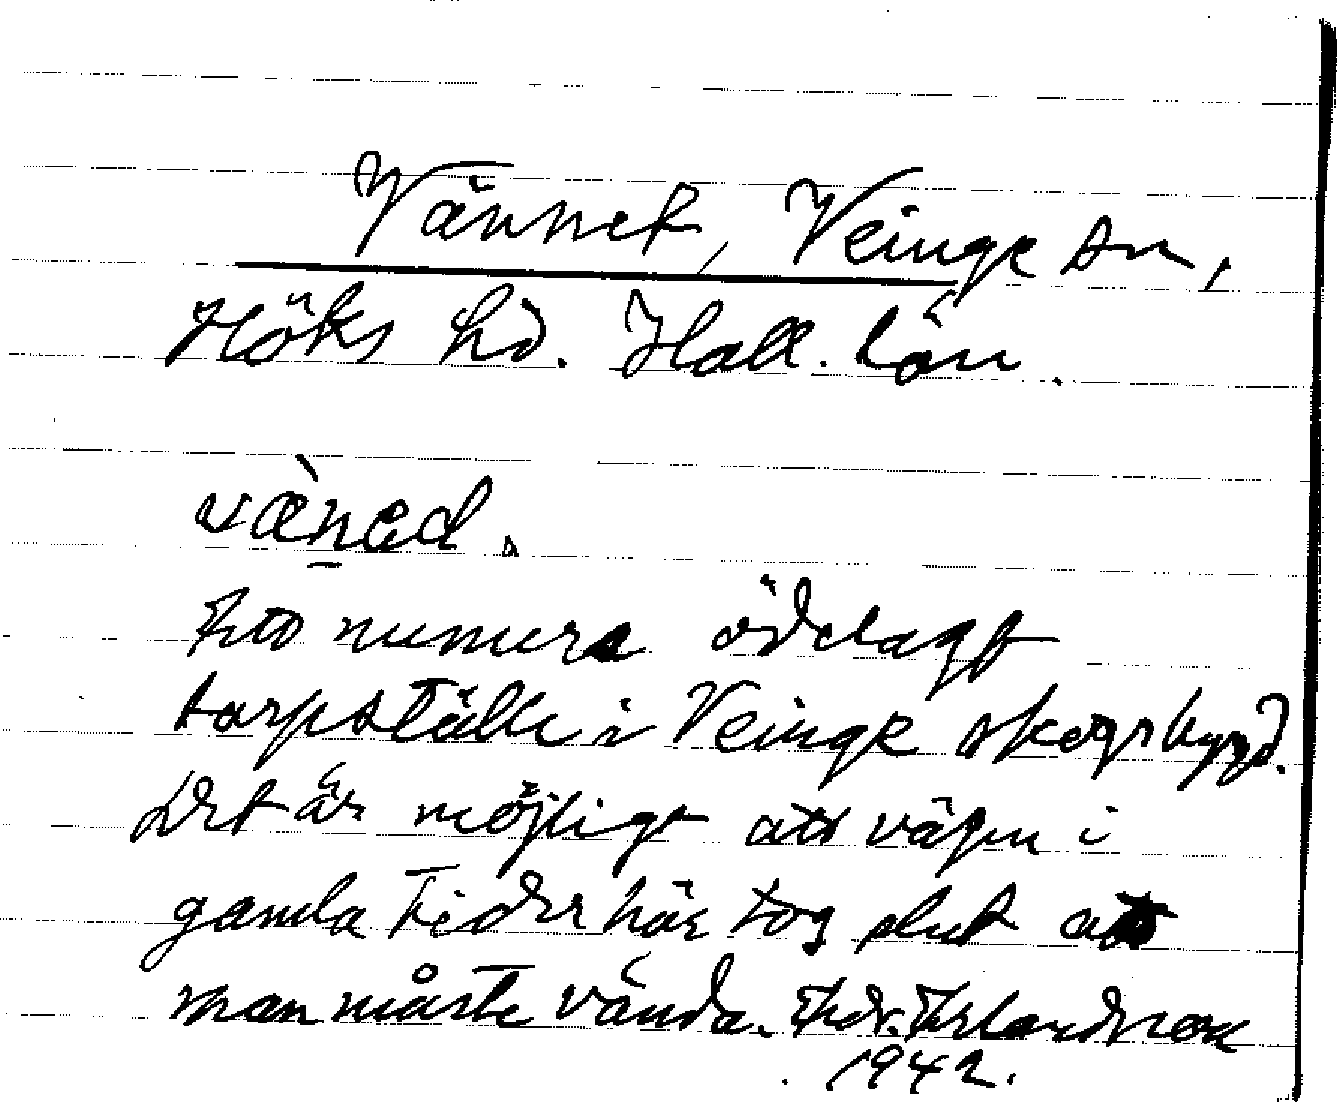 Vännet, Veinge sn,
Höks hd. Hall. län.
væ̀ṉed.
Ett numera ödelagt
torpställe i Veinge skogsbygd.
Det är möjligt att vägen i
gamla tider här tog slut att
man måste vända. Edv. Erlandsson
1942.